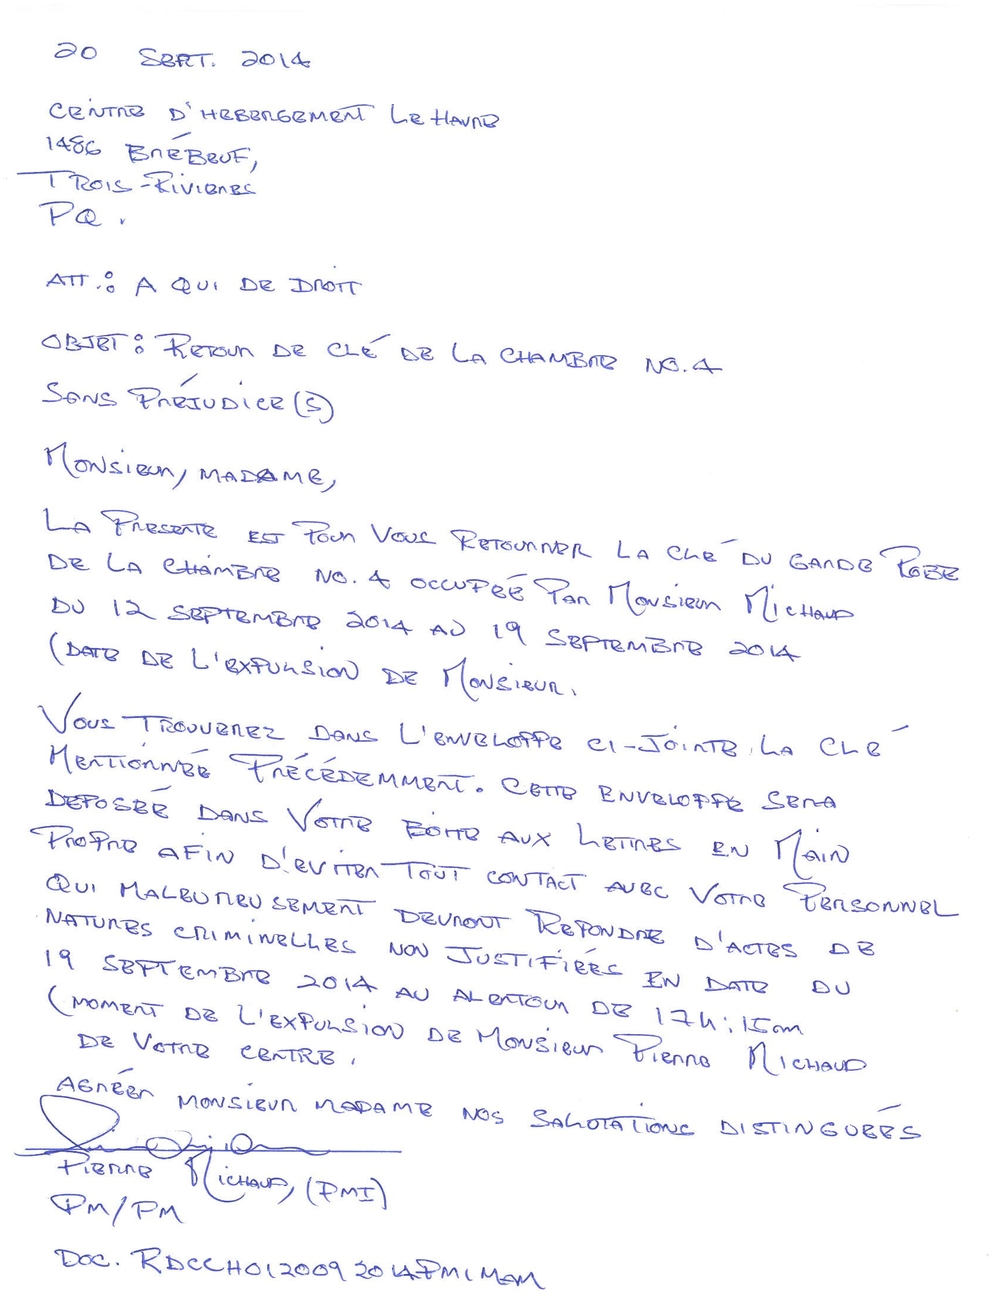 20 SEPT. 2014
CENTRE D'HEBERGEMENT LE HAVRE
1486 BRÉBEUF,
TROIS-RIVIERES
PQ.
ATT.: A QUI DE DROIT
OBJET: RETOUR DE CLÉ DE LA CHAMBRE NO. 4
SANS PRÉJUDICE(S)
MONSIEUR, MADAME,
LA PRESENTE EST POUR VOUS RETOURNER LA CLÉ DU GARDE ROBE
DE LA CHAMBRE NO. 4 OCCUPÉE PAR MONSIEUR MICHAUD
DU 12 SEPTEMBRE 2014 AU 19 SEPTEMBRE 2014
(DATE DE L'EXPULSION DE MONSIEUR.
VOUS TROUVEREZ DANS L'ENVELOPPE CI-JOINTE, LA CLÉ
MENTIONNÉE PRÉCÉDEMMENT. CETTE ENVELOPPE SERA
DEPOSÉE DANS VOTRE BOITE AUX LETTRES EN MAIN
PROPRE AFIN D'EVITER TOUT CONTACT AVEC VOTRE PERSONNEL
QUI MALEUREUSEMENT DEVRONT REPONDRE D'ACTES DE
NATURES CRIMINELLES NON JUSTIFIÉES EN DATE DU
19 SEPTEMBRE 2014 AU ALENTOUR DE 17H:15m
(MOMENT DE L'EXPULSION DE MONSIEUR PIERRE MICHAUD
DE VOTRE CENTRE.
AGRÉER MONSIEUR MADAME NOS SALUTATIONS DISTINGUÉES
PIERRE MICHAUD, (PMI)
PM/PM
DOC. RDCCH0120092014PMIMAM